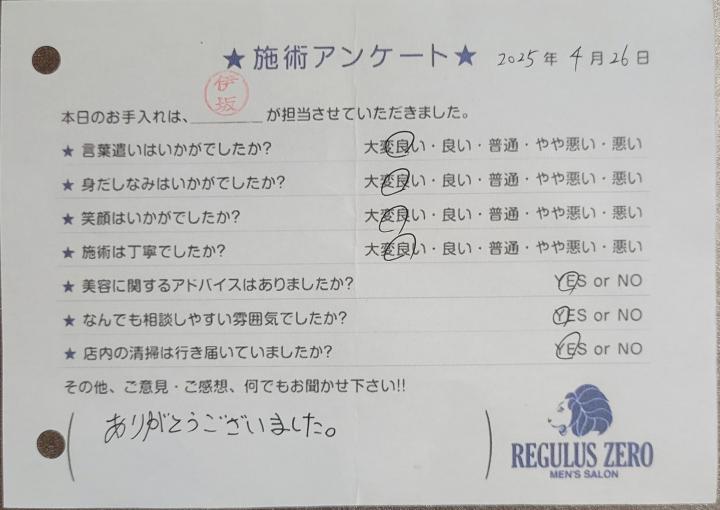 ★施術アンケート★ 2025年 4月 26日
本日のお手入れは、伊坂が担当させていただきました。
★ 言葉遣いはいかがでしたか? 大変良い・良い・普通・やや悪い・悪い
★ 身だしなみはいかがでしたか? 大変良い・良い・普通・やや悪い・悪い
★ 笑顔はいかがでしたか? 大変良い・良い・普通・やや悪い・悪い
★ 施術は丁寧でしたか? 大変良い・良い・普通・やや悪い・悪い
★ 美容に関するアドバイスはありましたか? YES or NO
★ なんでも相談しやすい雰囲気でしたか? YES or NO
★ 店内の清掃は行き届いていましたか? YES or NO
その他、ご意見・ご感想、何でもお聞かせ下さい!!
(ありがとうございました。)
REGULUS ZERO
MEN'S SALON